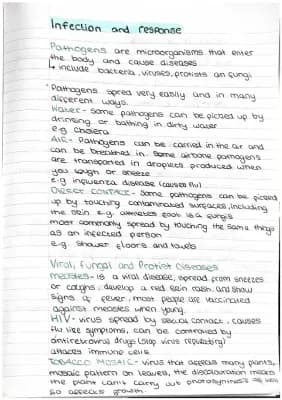 Infection and response
Pathogens are microorganisms that enter
the body and cause diseases
↳ include bacteria, viruses, protists an fungi
Pathogens spread very easily and in many
different ways.
Water - some pathogens can be picked up by
drinking or bathing in dirty water
e.g cholera
AIR - Pathogens can be carried in the air and
can be breathed in. Some airborne pathogens
are transported in droplets produced when
you cough or sneeze
e.g influenza diseases (causes flu)
DIRECT CONTACT - Some pathogens can be picked
up by touching contaminated surfaces, including
the skin e.g. athletes foot is a fungis
most commonly spread by touching the same things
as an infected person
e.g. shower floors and towels
Viral, Fungal and Protist Diseases
measles - is a viral disease, spread from sneezes
or coughs, develop a red skin rash, and show
signs of fever, most people are vaccinated
against measles when young.
HIV - virus spread by sexual contact, causes
flu like symptoms, can be controlled by
antiretroviral drugs (stop virus replicating)
attacks immune cells.
TOBACCO MOSAIC - virus that affects many plants,
mosaic pattern on leaves, the discolouration means
the plant can't carry out photosynthesis as well
so affects growth.